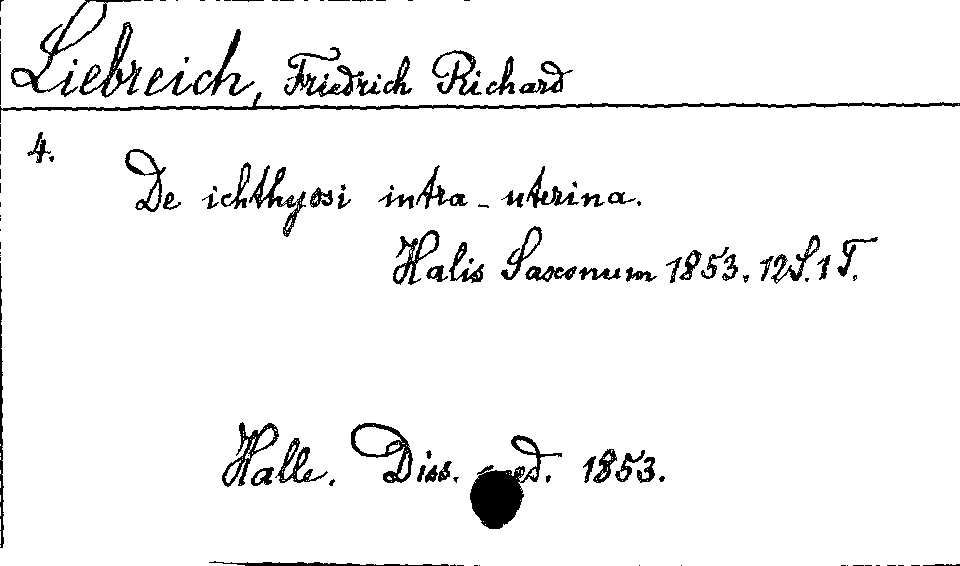 Liebreich, Friedrich Richard
4.
De ichthyosi intra-uterina.
Halis Saxonum 1853. 12 S. 1 T.
Halle. Diss. med. 1853.